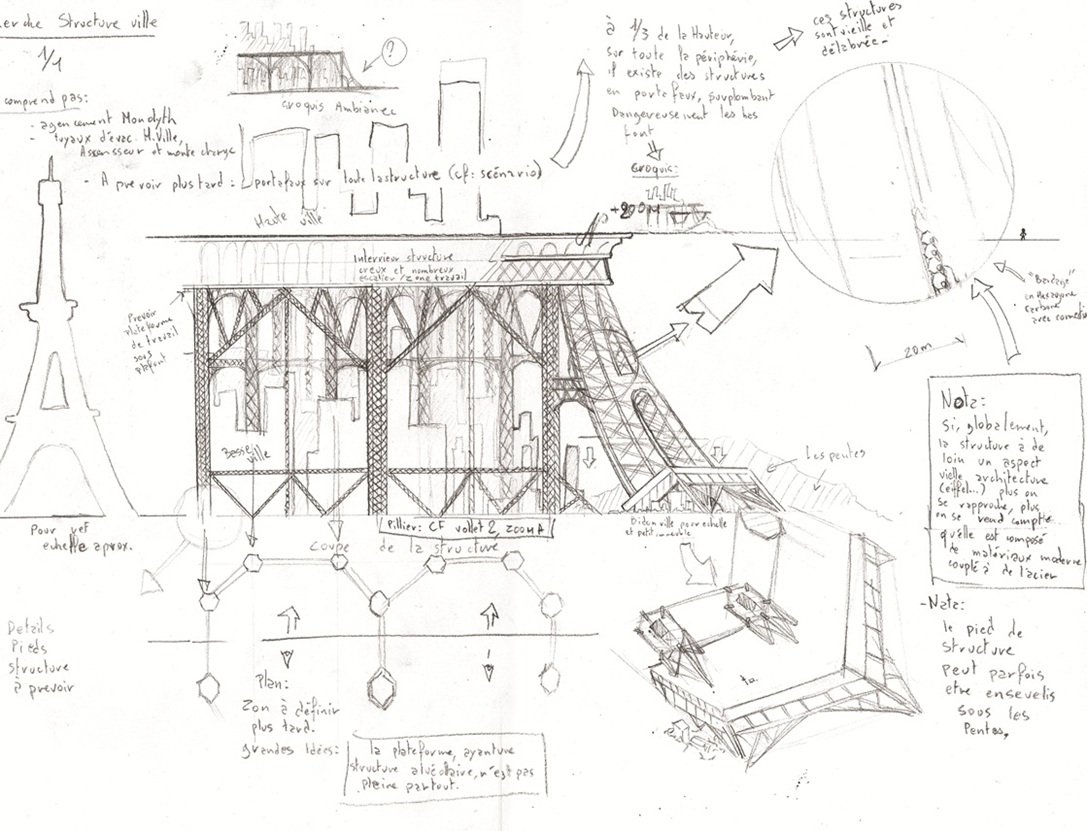 erche Structure ville
1/1
comprend pas:
- agencement Monolyth
- tuyaux d'évac. H.Ville,
Assensseur et monte charge
- A prevoir plus tard : portafaux sur toute la structure (cf: scénario)
?
croquis Ambiance
à 1/3 de la Hauteur,
sur toute la périphérie,
il existe des structures
en porte faux, surplombant
Dangereusement les bas
font
croquis:
+200M
ces structures
sont vieille et
délabrée-
Haute ville
Interrieur structure
creux et nombreux
escalier / zone travail
Prevoir
plateforme
de travail
sous
plafont
Basse
ville
20m
en Hexagone
carbone
avec
Les pentes
Nota:
Si, globalement,
la structure à de
loin un aspect
vielle architecture
(eiffel...) plus on
se rapproche, plus
on se rend compte
quelle est composé
de matériaux moderne
couplé à de l'acier
Pour ref
echelle aprox.
Pillier: CF vollet 2, 200MA
coupe de la structure
Bidonville pour echelle
et petit immeuble
Details
Pieds
structure
à prevoir
Plan:
Zon à définir
plus tard.
grandes Idées:
la plateforme, ayant une
structure alvéollaire, n'est pas
pleine partout.
-Nota:
le pied de
structure
peut parfois
etre ensevelis
sous les
Pentes,